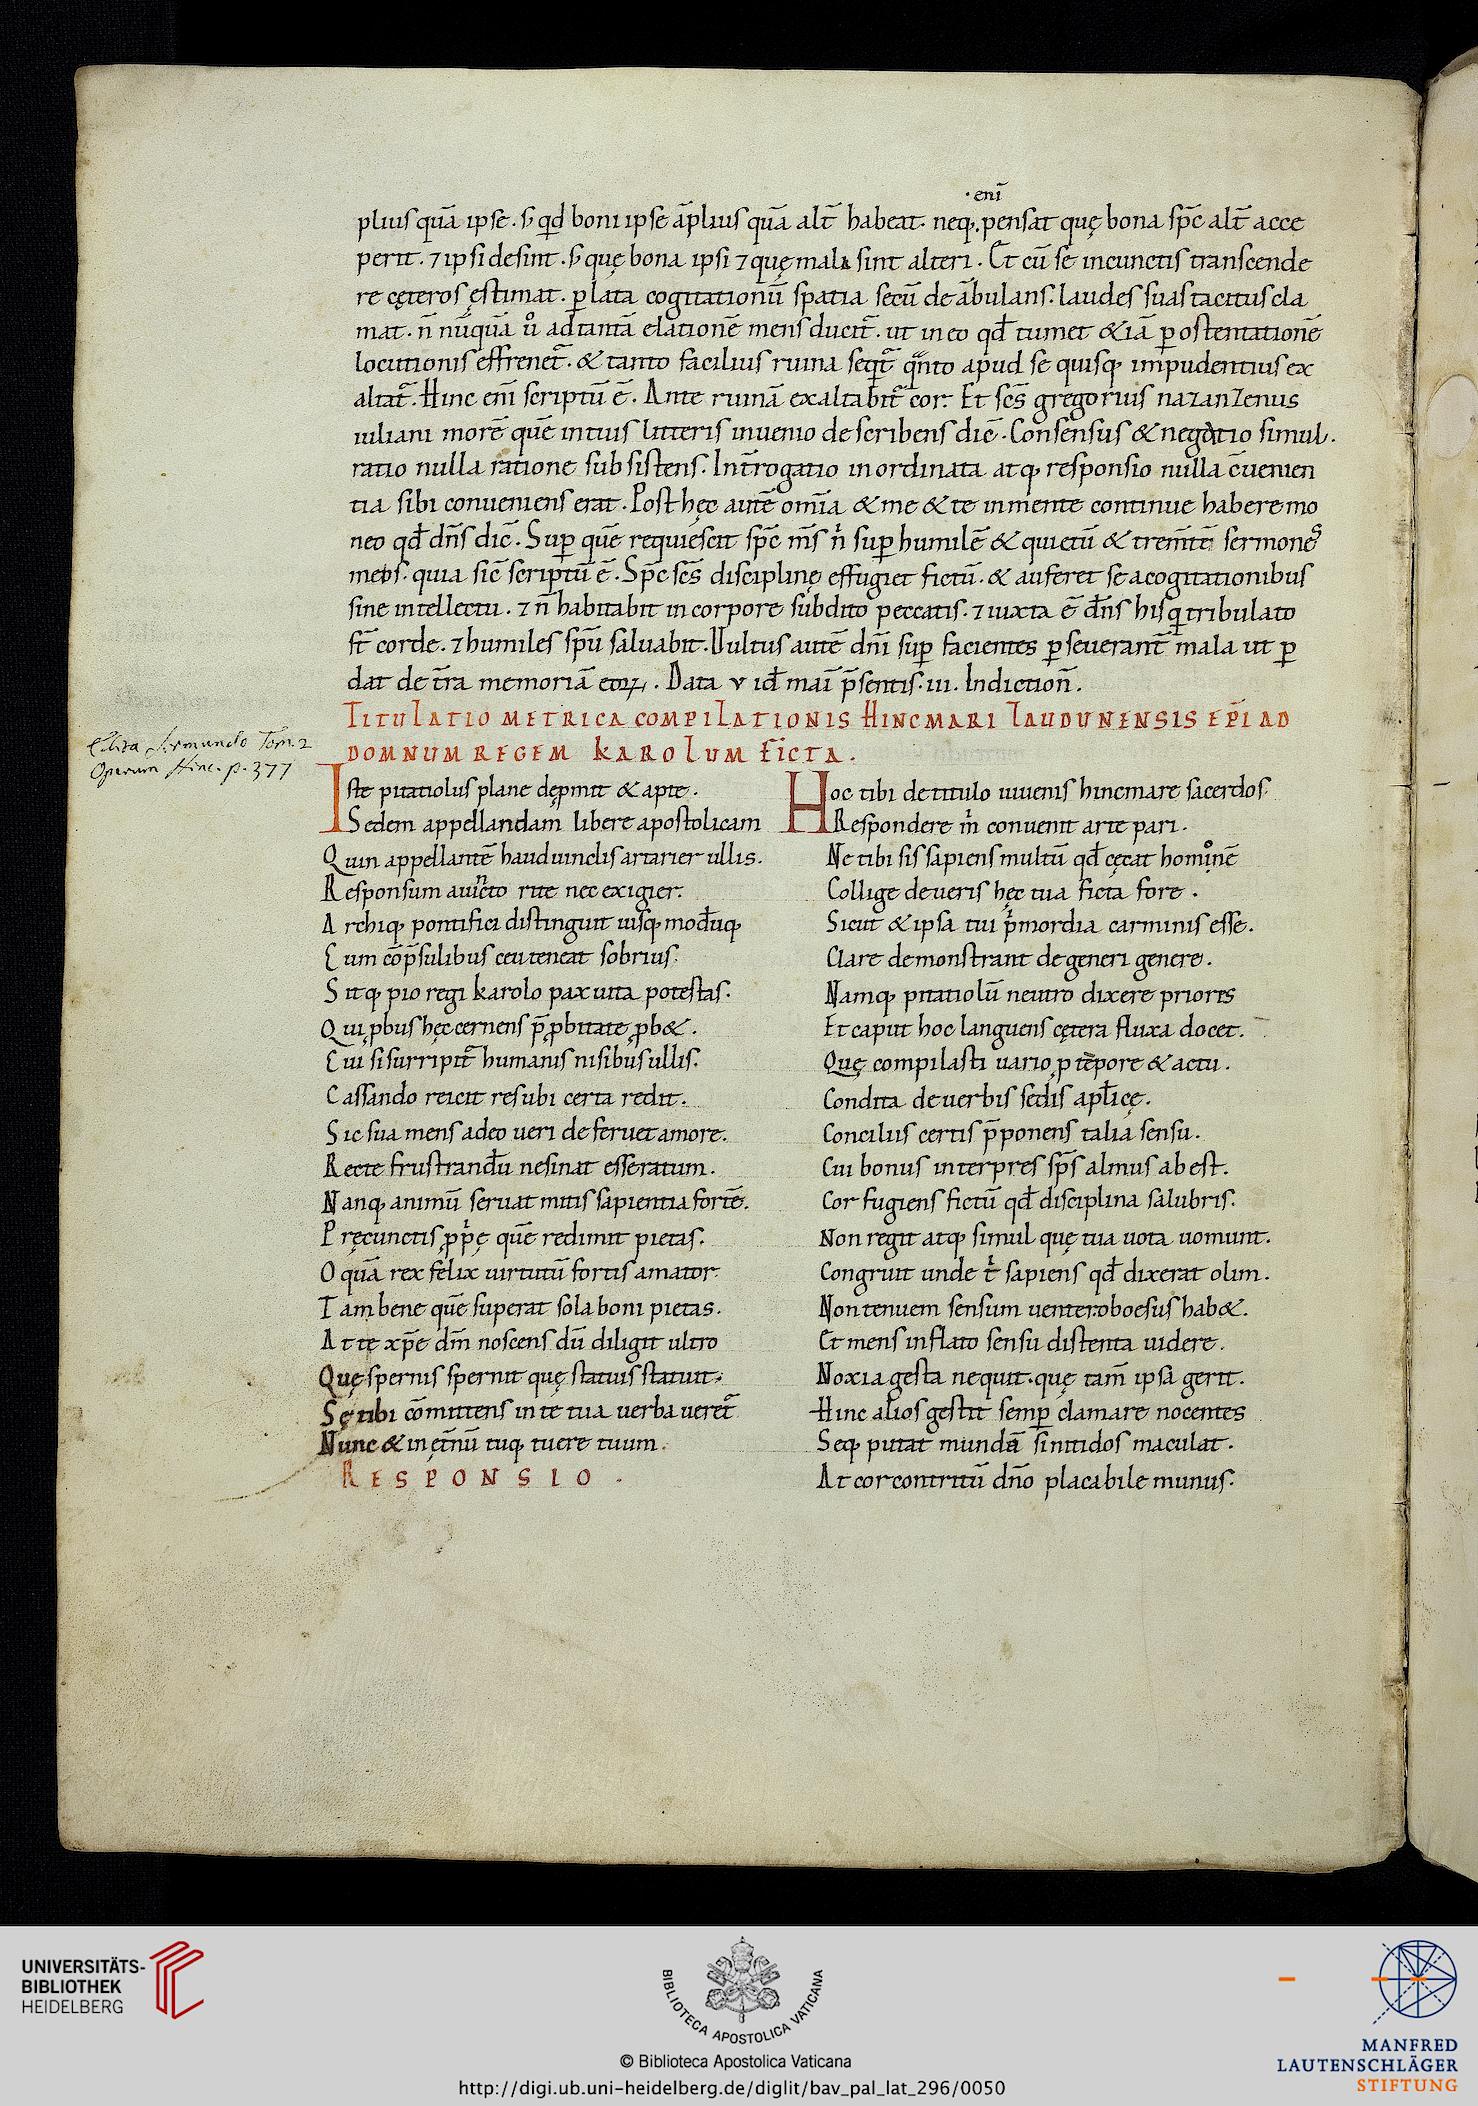 · enī
plius quā ipse . s̄ qd̄ boni ipse āplius quā alt̄ habeat . neq; pensat quę bona sp̄c alt̄ acce
perit . ⁊ ipsi desint . s̄ quę bona ipsi ⁊ quę mala sint alteri . Et cū se in cunctis transcende
re cęteros ęstimat . p̲ lata cogitationū spatia secū deābulans : laudes suas tacitus cla
mat . n̄ nūquā ů ad tantā elationē mensducit̄ . ut in eo qd̄ tumet & iā p̲ ostentationē
locutionis effrenet̄ . & tanto facilius ruina seq̄t̄ qanto apud se quisq; impudentius ex
altat̄ . Hinc enī scriptū ē . Ante ruinā exaltabit̄ cor . Et scs̄ gregorius nazanzenus
iuliani morē quē intius litteris inuenio describens dic̄ . Consensus & negatio simul .
ratio nulla ratione subsistens . Int̄rogatio inordinata atq; responsio nulla c̄uenien
tia sibi conueniens erat . Post hęc autē omīa & me & te in mente continue habere mo
neo qd̄ dn̄s dic̄ . Sup̲ quē requiescit sp̄c m̄s n̄ sup̲ humilē & quietū & trem̄tē sermones
meos . quia sic̄ scriptū ē . Sp̄c scs̄ disciplinę effugiet fictū . & auferet se a cogitationibus
sine intellectu . ⁊ n̄ habitabit in corpore subdito peccatis . ⁊ iuxta ē dn̄s his q̄ tribulato
st̄ corde . ⁊ humiles sp̄u saluabit . Uultus autē dn̄i sup̲ facientes p̲seuerant̄ mala ut p̲
dat de t̄ra memoriā eoꝝ . Data v id̄ maī p̄sentis . iii . Indiction̄ .
TITULATIO METRICA COMPILATIONIS HINCMARI LAUDUNENSIS EP̄I AD
DOMNUM REGEM KAROLUM FICTA .
Edita Sirmundo Tom. 2
Operum Hinc. p. 377
Iste pitatiolus plane dępmit & apte .
Sedem appellandam libere apostolicam
Quin appellantē haud uinclis artarier ullis .
Responsum auincto rite nec exigier .
Archiq; pontifici distinguit iusq; modūq;
Cum cōp̄sulibus ceu teneat sobrius .
Sitq; pio regi karolo pax uita potestas .
Qui ꝓbus hęc cernens p̄ ꝓbitate ꝓb& .
Cui si surripit̄ humanis nisibus ullis .
Cassando reicit res ubi certa redit .
Sic sua mens adeo ueri deferuet amore .
Recte frustrandū ne sinat esse ratum .
Nanq; animū seruat mitis sapientia fortē .
Pręcunctis ꝓp̄ę quē redimit pietas .
O quā rex felix uirtutū fortis amator .
Tam bene quē superat sola boni pietas .
At te xp̄e dm̄ noscens dū diligit ultro
Quę spernis spernit quę statuis statuit .
Sę tibi cōmittens in te tua uerba ueret̄
Nunc & in ęt̄nū tuq; tuere tuum .
RESPONSIO .
Hoc tibi de titulo iuuenis hincmare sacerdos .
Respondere m̄ conuenit arte pari .
Ne tibi sis sapiens multū qd̄ cęcat hominē
Collige de ueris hęc tua ficta fore .
Sicut & ipsa tui p̄mordia carminis esse .
Clare demonstrant degeneri genere .
Namq; pitatiolū neutro dixere priores
Et caput hoc languens cętera fluxa docet .
Quę compilasti uario ꝓ tēpore & actu .
Condita de uerbis sedis apl̄icę .
Conciliis certis p̄ponens talia sensu .
Cui bonus interpres sp̄s almus abest .
Cor fugiens fictū qd̄ disciplina salubris .
Non regit atq; simul quę tua uota uomunt .
Congruit unde t̄ sapiens qd̄ dixerat olim .
Non tenuem sensum uenter oboesus hab& .
Et mens inflato sensu distenta uidere .
Noxia gesta nequit . quę tam̄ ipsa gerit .
Hinc alios gestit semp̲ clamare nocentes
Seq; putat mundā s̄ nitidos maculat .
At cor contritū dn̄o placabile munus .
UNIVERSITÄTS-
BIBLIOTHEK
HEIDELBERG
BIBLIOTECA APOSTOLICA VATICANA
© Biblioteca Apostolica Vaticana
http://digi.ub.uni-heidelberg.de/diglit/bav_pal_lat_296/0050
MANFRED
LAUTENSCHLÄGER
STIFTUNG